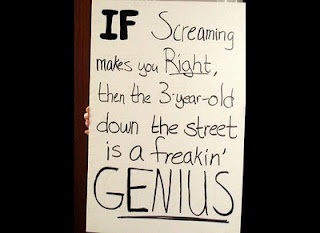 IF Screaming
makes you Right,
then the 3-year-old
down the street
is a freakin'
GENIUS